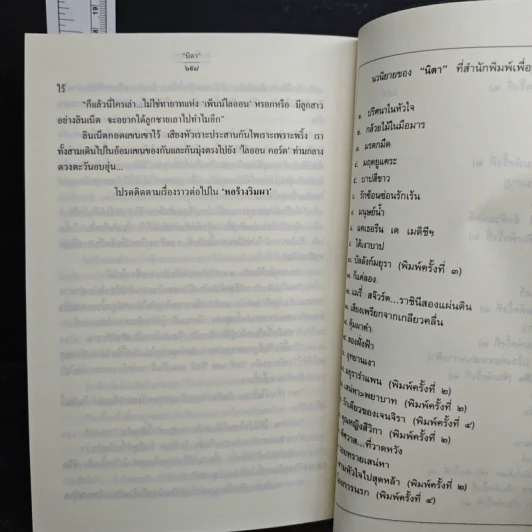 "นิตา"
๒๕๔
ไร้
"ก็แล้วนี่ใครเล่า...ไม่ใช่ทายาทแห่ง 'เพ็นบีไลออน' หรอกหรือ มีลูกสาว
อย่างลินเน็ต จะอยากได้ลูกชายเอาไปทำไมอีก"
ลินเน็ตกอดแขนเขาไว้ เสียงหัวเราะประสานกันไพเราะเพราะพริ้ง เรา
ทั้งสามเดินไปในอ้อมแขนของกันและกันมุ่งตรงไปยัง 'ไลออน คอร์ต' ท่ามกลาง
ดวงตะวันอบอุ่น...
โปรดติดตามเรื่องราวต่อไปใน 'หอร้างริมผา'
นวนิยายของ "นิดา" ที่สำนักพิมพ์เพื่อ
๑. ปริศนาในหัวใจ
๒. กล้วยไม้ในมือมาร
๓. มรดกมืด
๔. มฤตยูแคระ
๕. บาปสีขาว
๖. รักซ้อนซ่อนรักเร้น
๗. มนุษย์น้ำ
๘. แคเธอรีน เด เมดิซีฯ
๙. ใต้เงาบาป
บัลลังก์มยุรา (พิมพ์ครั้งที่ ๓)
ก็แค่ลอง
แมรี่ สจ๊วร์ต...ราชินีสองแผ่นดิน
เสียงเพรียกจากเกลียวคลื่น
คุ้มผาคำ
ของฝั่งฟ้า
อุทยานเงา
มธุรารำแพน (พิมพ์ครั้งที่ ๒)
เสน่หา-พยาบาท (พิมพ์ครั้งที่ ๒)
รักเดียวของเจนจิรา (พิมพ์ครั้งที่ ๔)
คุณหญิงสีวิกา (พิมพ์ครั้งที่ ๒)
วาส...ที่วาดหวัง
ทรายเสน่หา
ตามหัวใจไปสุดหล้า (พิมพ์ครั้งที่ ๒)
การนรก (พิมพ์ครั้งที่ ๔)